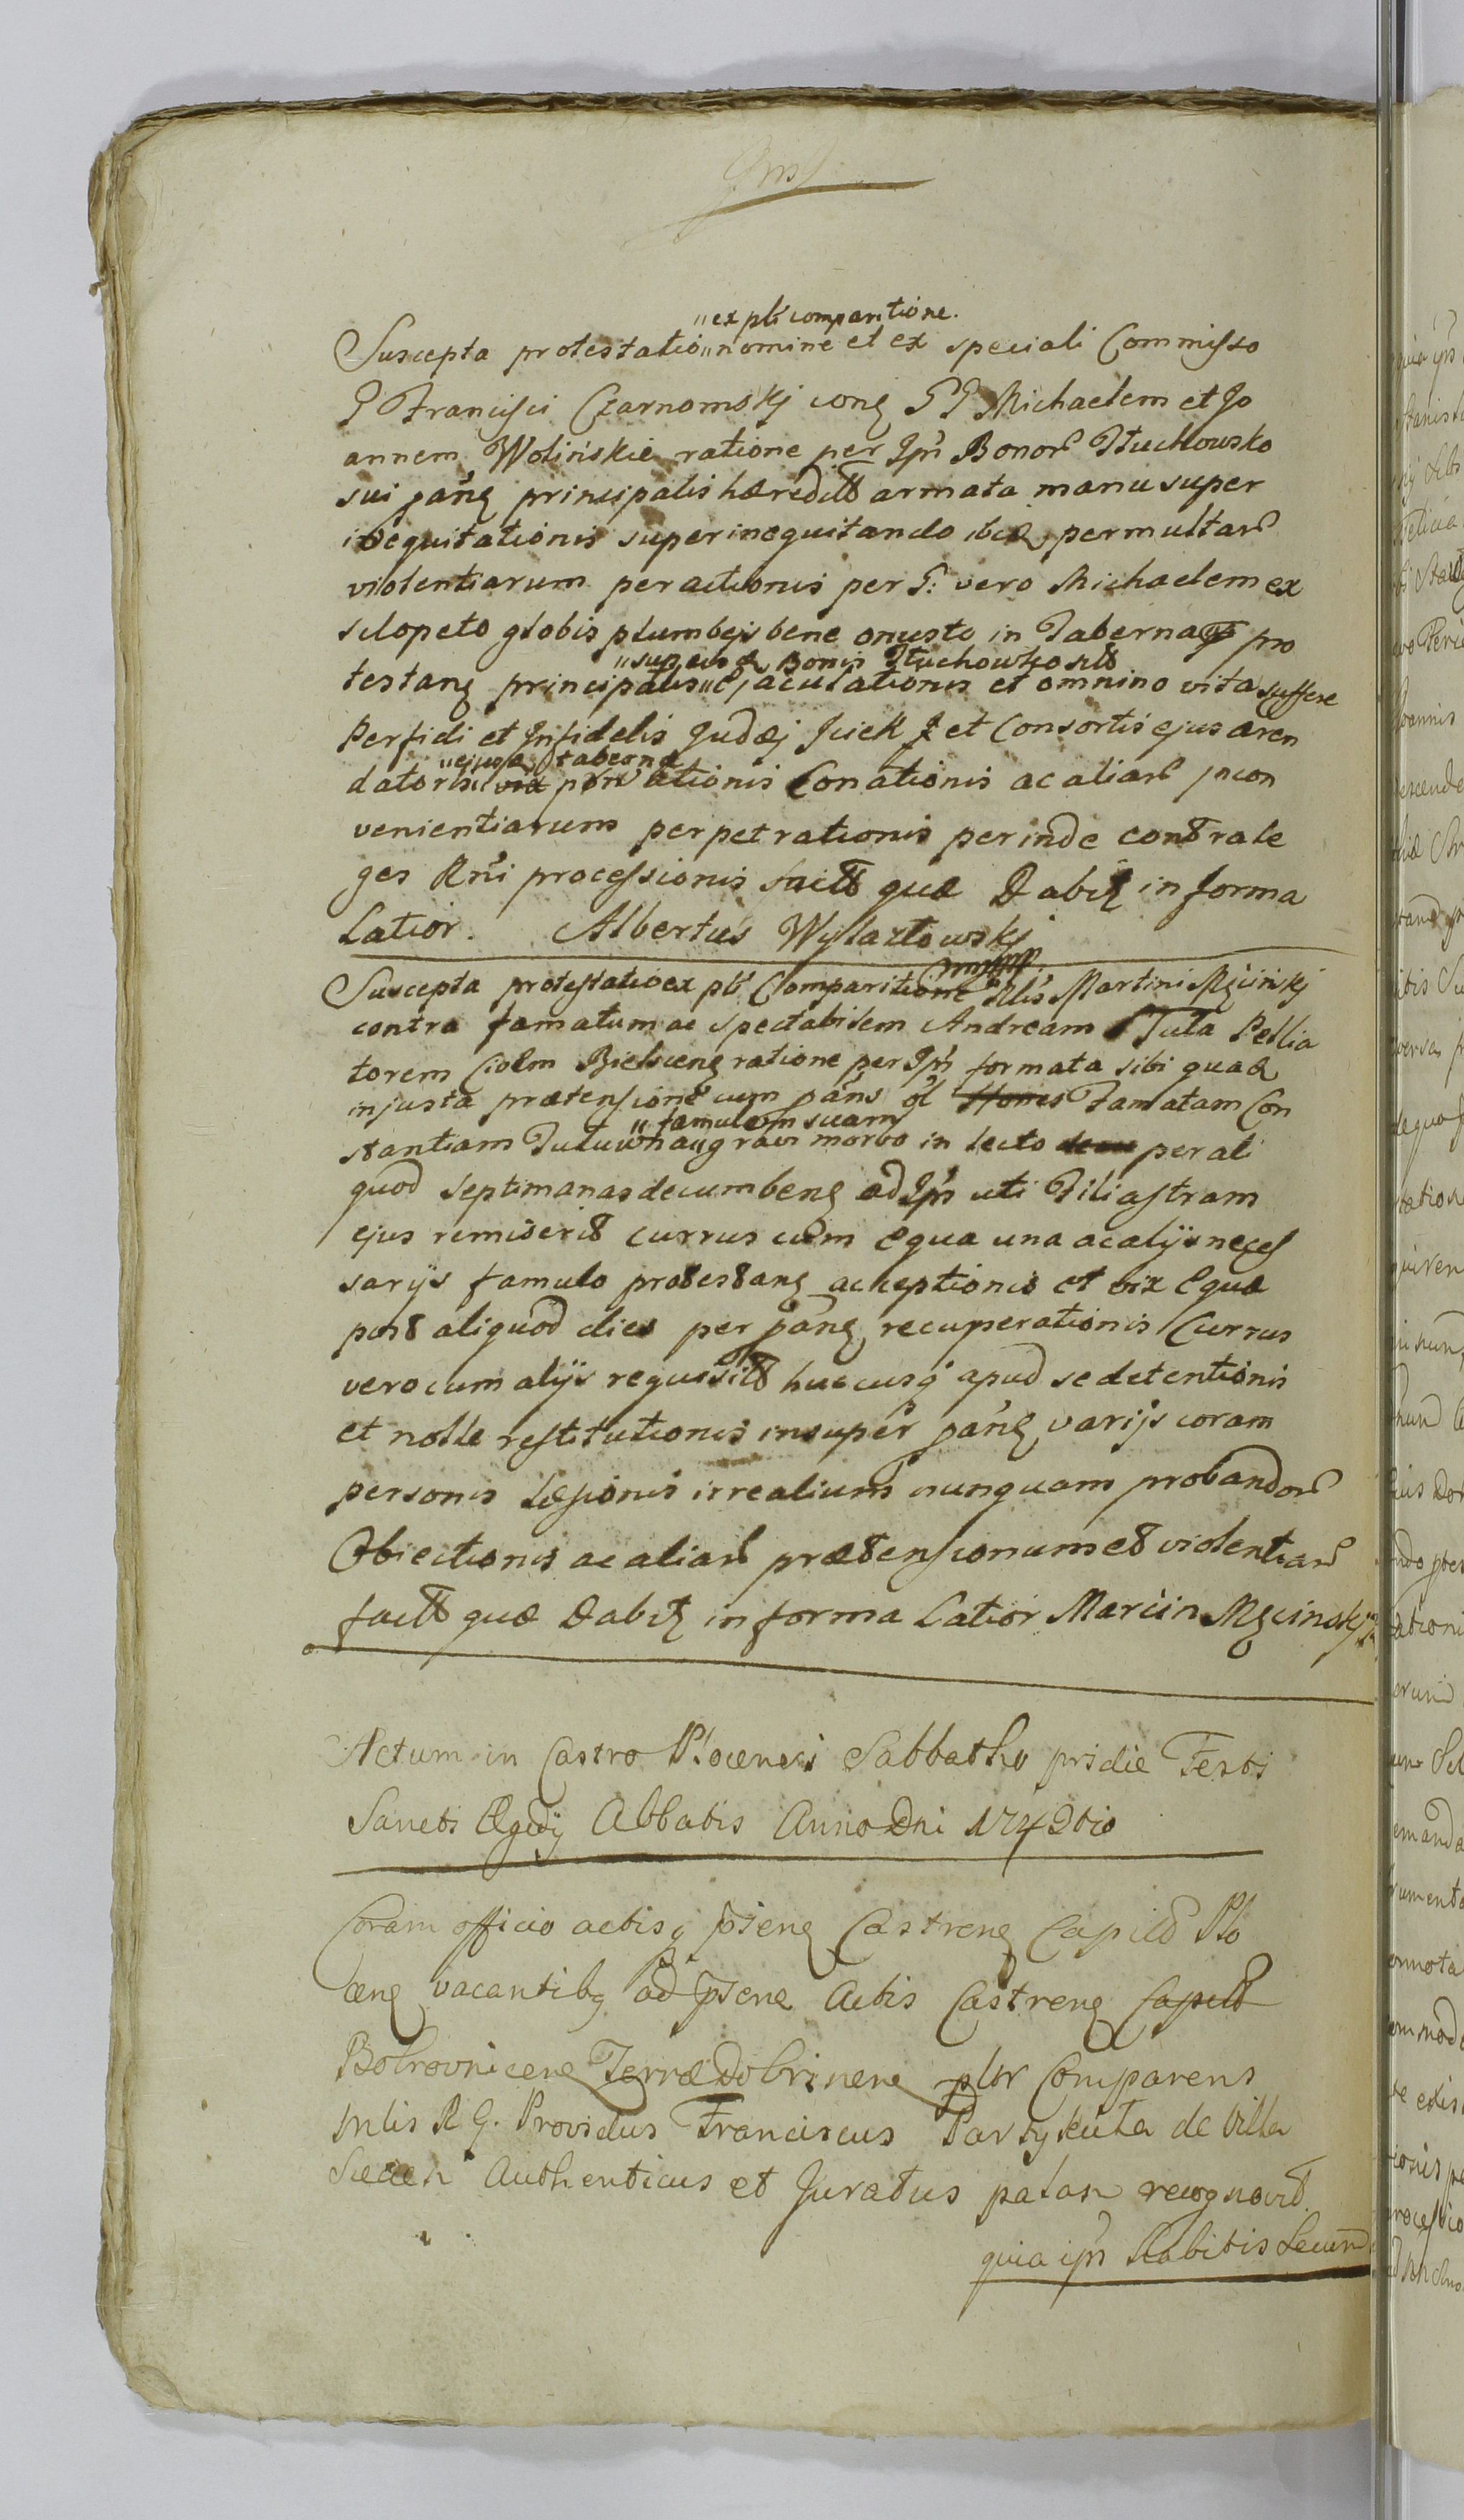 "ex pti comparitione.
Suscepta protestatio "nomine et ex speciali Commisso
G Francisci Czarnomskj conq GG Michaelem et Jo
annem Wolińskie ratione per Ipń Bonor Tłuchowsko
sui pańq principalis hæredit armata manu super
inequitationis superinequitando ibiq permultar
violentiarum peractionis per G: vero Michaelem ex
sclopeto globis plumbejs bene onusto in Taberna pro
"super eisq Bonis Tłuchowko sit
testanq principalis "Ejaculationis et omnino vita suffere
Perfidi et Infidelis Judæj Jciek et Consortis ejus aren
"ejusq taberna
datoris vix privationis Conationis ac aliar incon
venientiarum perpetrationis perinde contra le
ges Rńi processionis fact quæ Dabit in forma
Latior. Albertus Wylazłowskj
Suscepta protestatio ex pti Comparitione Nlis Martini Męcinskj
contra famatum ac spectabilem Andream Tuta Pellia
torem Ciolm Bielscenq ratione per Ipń formata sibi quad
injusta prætensione cum pańs ol Famatam Con
"famulum suam
stantiam Tutuwna "gravi morbo in lecto per ali
quod septimanas decumbenq ad Ipń uti Filiastram
ejus remiserit currus cum Equa una ac alijs neces
sarijs famulo protestanq acceptionis et vix Equæ
post aliquod dies per pańq recuperationis Currus
vero cum alijs requisit hucusq apud se detentionis
et nolle restitutionis insuper pańq varijs coram
personis Læsionis irrealium nunquam probandor
Obiectionis ac aliar prætensionum et violentiar
fact quæ Dabit in forma Latior Marcin Męcinskj
Actum in Castro Plocensi Sabbatho pridie Festi
Sancti Ægidij Abbatis Anno Dni 1742tio
Coram officio actisq psenq Castrenq Capit Plo
cenq vacantibq ad psenq Actis Castrenq Capit
Bobrovnicenq Terræ Dobrinenq pltr Comparens
Mlis R G. Providus Franciscus Partykuta de Villa
Authenticus et Juratus palam recognovit
quia ipń habitis Secum